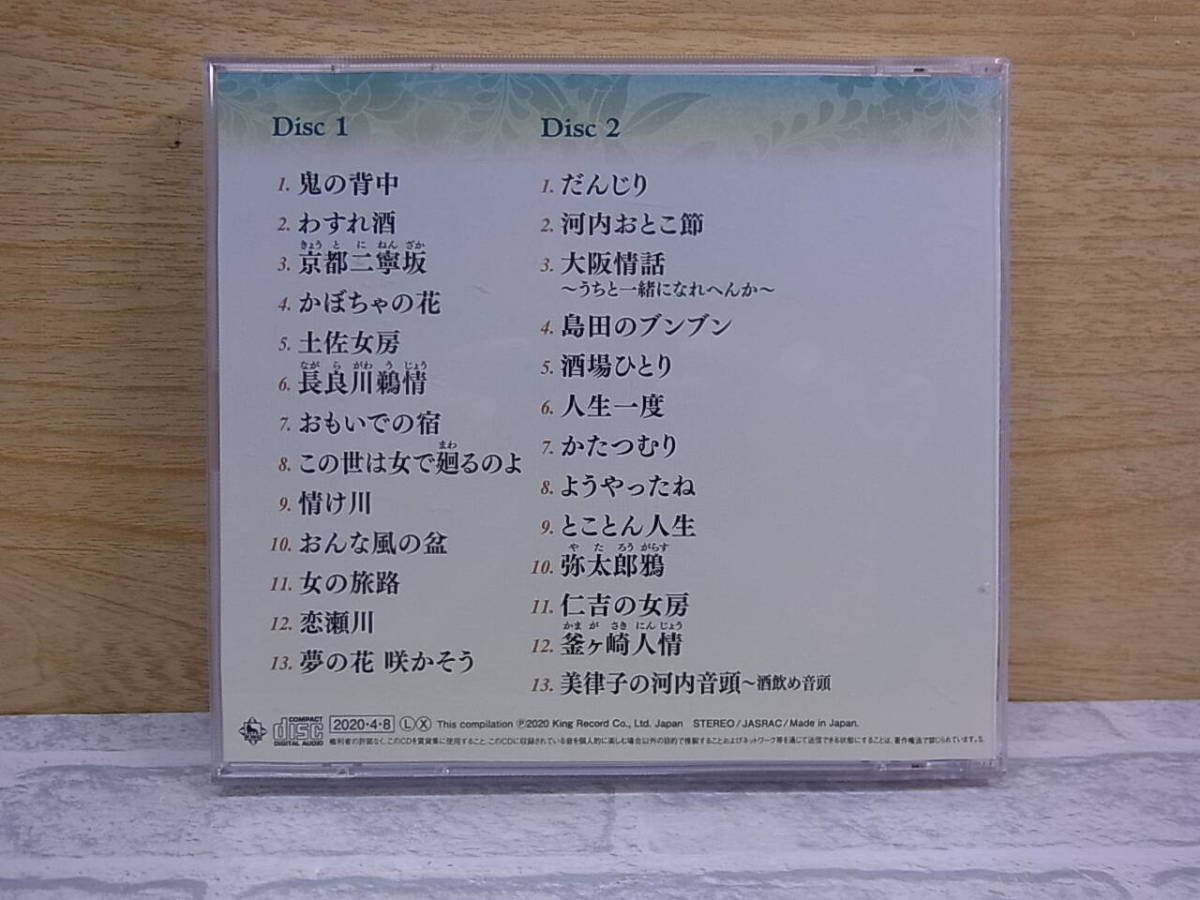 Disc 1
1. 鬼の背中
2. わすれ酒
きょう と に ねん ざか
3. 京都二寧坂
4. かぼちゃの花
5. 土佐女房
なが ら がわ う じょう
6. 長良川鵜情
7. おもいでの宿
まわ
8. この世は女で廻るのよ
9. 情け川
10. おんな風の盆
11. 女の旅路
12. 恋瀬川
13. 夢の花 咲かそう
Disc 2
1. だんじり
2. 河内おとこ節
3. 大阪情話
～うちと一緒になれへんか～
4. 島田のブンブン
5. 酒場ひとり
6. 人生一度
7. かたつむり
8. ようやったね
9. とことん人生
や た ろう がらす
10. 弥太郎鴉
11. 仁吉の女房
かま が さき にん じょう
12. 釜ヶ崎人情
13. 美律子の河内音頭～酒飲め音頭
COMPACT
disc
DIGITAL AUDIO
2020・4・8 Ⓛ Ⓧ This compilation Ⓟ2020 King Record Co., Ltd. Japan STEREO/JASRAC/Made in Japan.
権利者の許諾なく、このCDを賃貸業に使用すること、このCDに収録されている音を個人的に楽しむ場合以外の目的で複製することおよびネットワーク等を通じて送信できる状態にすることは、著作権法で禁じられています。